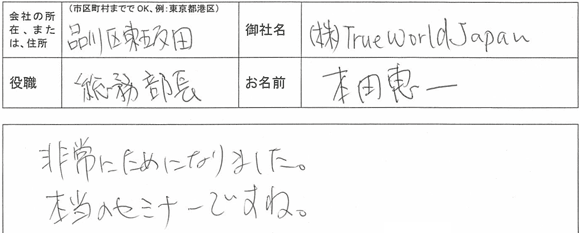 会社の所在、または、住所
(市区町村までで OK、例:東京都港区)
品川区東五反田
御社名
(株)True World Japan
役職
総務部長
お名前
本田恵一
非常にためになりました。
本当のセミナーですね。